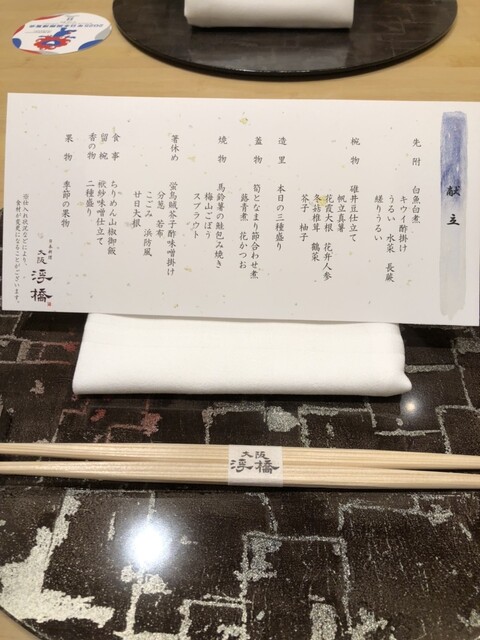 献立
先附 白魚白煮
キウイ酢掛け
うるい 水菜 長蕨
縒りうるい
椀物 碓井豆仕立て
帆立真薯
花霞大根 花弁人参
冬菇椎茸 鶴菜
芥子 柚子
造里 本日の三種盛り
蓋物 筍となまり節合わせ煮
蕗青煮 花かつお
焼物 馬鈴薯の鮭包み焼き
梅山ごぼう
スプラウト
箸休め 蛍烏賊芥子酢味噌掛け
分葱 若布
こごみ 浜防風
廿日大根
食事 ちりめん山椒御飯
留椀 袱紗味噌仕立て
香の物 二種盛り
果物 季節の果物
日本料理
大阪
淳橋
※仕入れ状況などにより、
食材が変更になることがございます。
大阪
淳橋